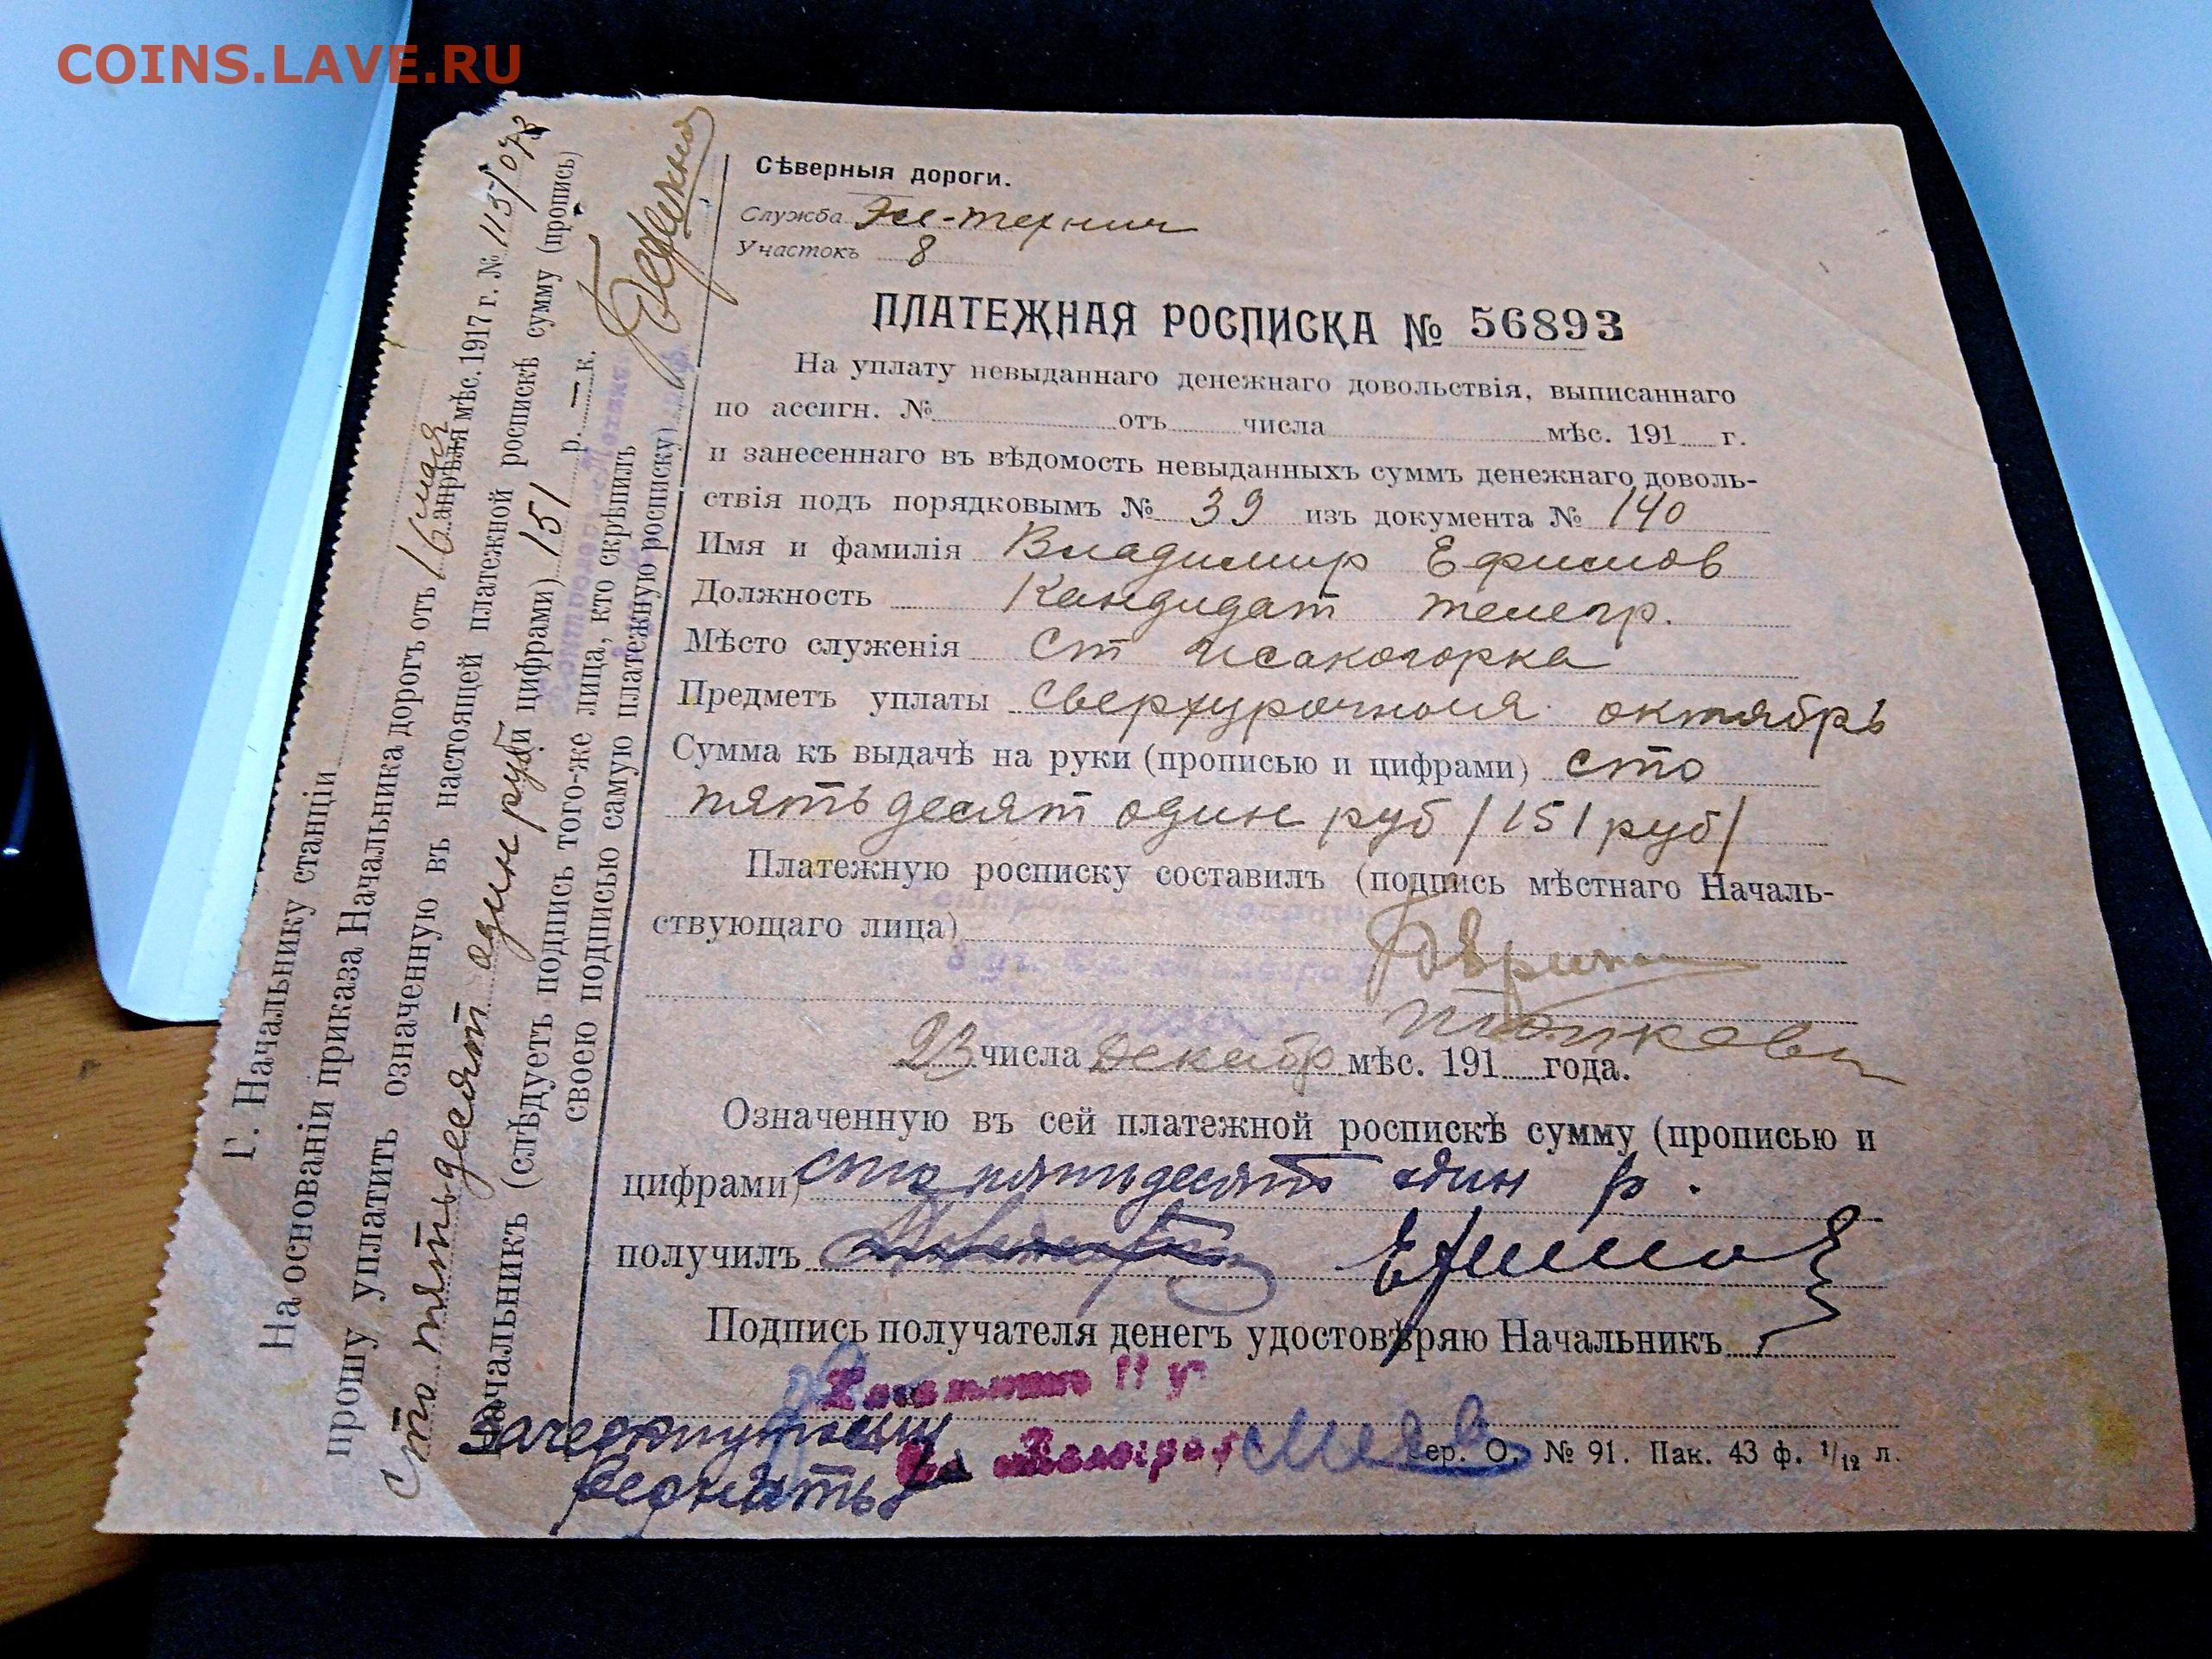 COINS.LAVE.RU
Сѣверныя дороги.
Служба Эл-технич
Участокъ 8
ПЛАТЕЖНАЯ РОСПИСКА № 56893
На уплату невыданнаго денежнаго довольствія, выписаннаго
по ассигн. № отъ числа мѣс. 191 г.
и занесеннаго въ вѣдомость невыданныхъ суммъ денежнаго доволь-
ствія подъ порядковымъ № 39 изъ документа № 140
Имя и фамилія Владимир Ефимов
Должность Кандидат телегр.
Мѣсто служенія Ст Исакогорка
Предметъ уплаты сверхурочныя октябрь
Сумма къ выдачѣ на руки (прописью и цифрами) сто
пятьдесят один руб /151 руб/
Платежную росписку составилъ (подпись мѣстнаго Началь-
ствующаго лица)
23 числа декабр мѣс. 191 года.
Означенную въ сей платежной роспискѣ сумму (прописью и
цифрами) сто пятьдесятъ один р.
получилъ Ефимов
Подпись получателя денегъ удостовѣряю Начальникъ
зачеркнутому
верить
Сер. О. № 91. Пак. 43 ф. 1/12 л.
Г. Начальнику станціи
На основаніи приказа Начальника дорогъ отъ 16 мая апрѣля мѣс. 1917 г. № 113/073
прошу уплатить означенную въ настоящей платежной роспискѣ сумму (пропись)
сто пятьдесят один руб и цифрами) 151 р. — к.
Начальникъ (слѣдуетъ подпись того-же лица, кто скрѣпилъ
своею подписью самую платежную росписку)